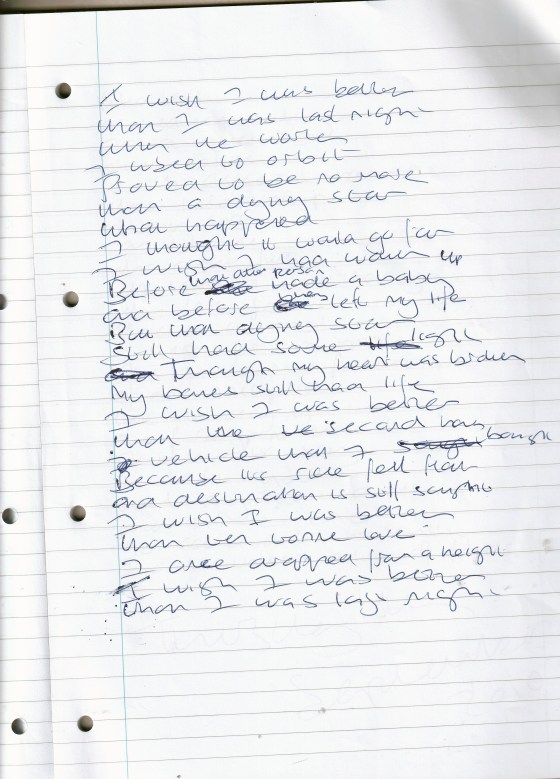 I wish I was better
than I was last night
when the world
I used to orbit
Proved to be no more
than a dying star
What happened
I thought it would go far
I wish I had woken up
Before that other person made a baby
and before left my life
But that dying star
Still had some light
Though my heart was broken
My bones still had life
I wish I was better
than the second hand
vehicle that I bought
Because its ride fell flat
and destination is still
I wish I was better
than love
I once dropped from a height
I wish I was better
than I was last night